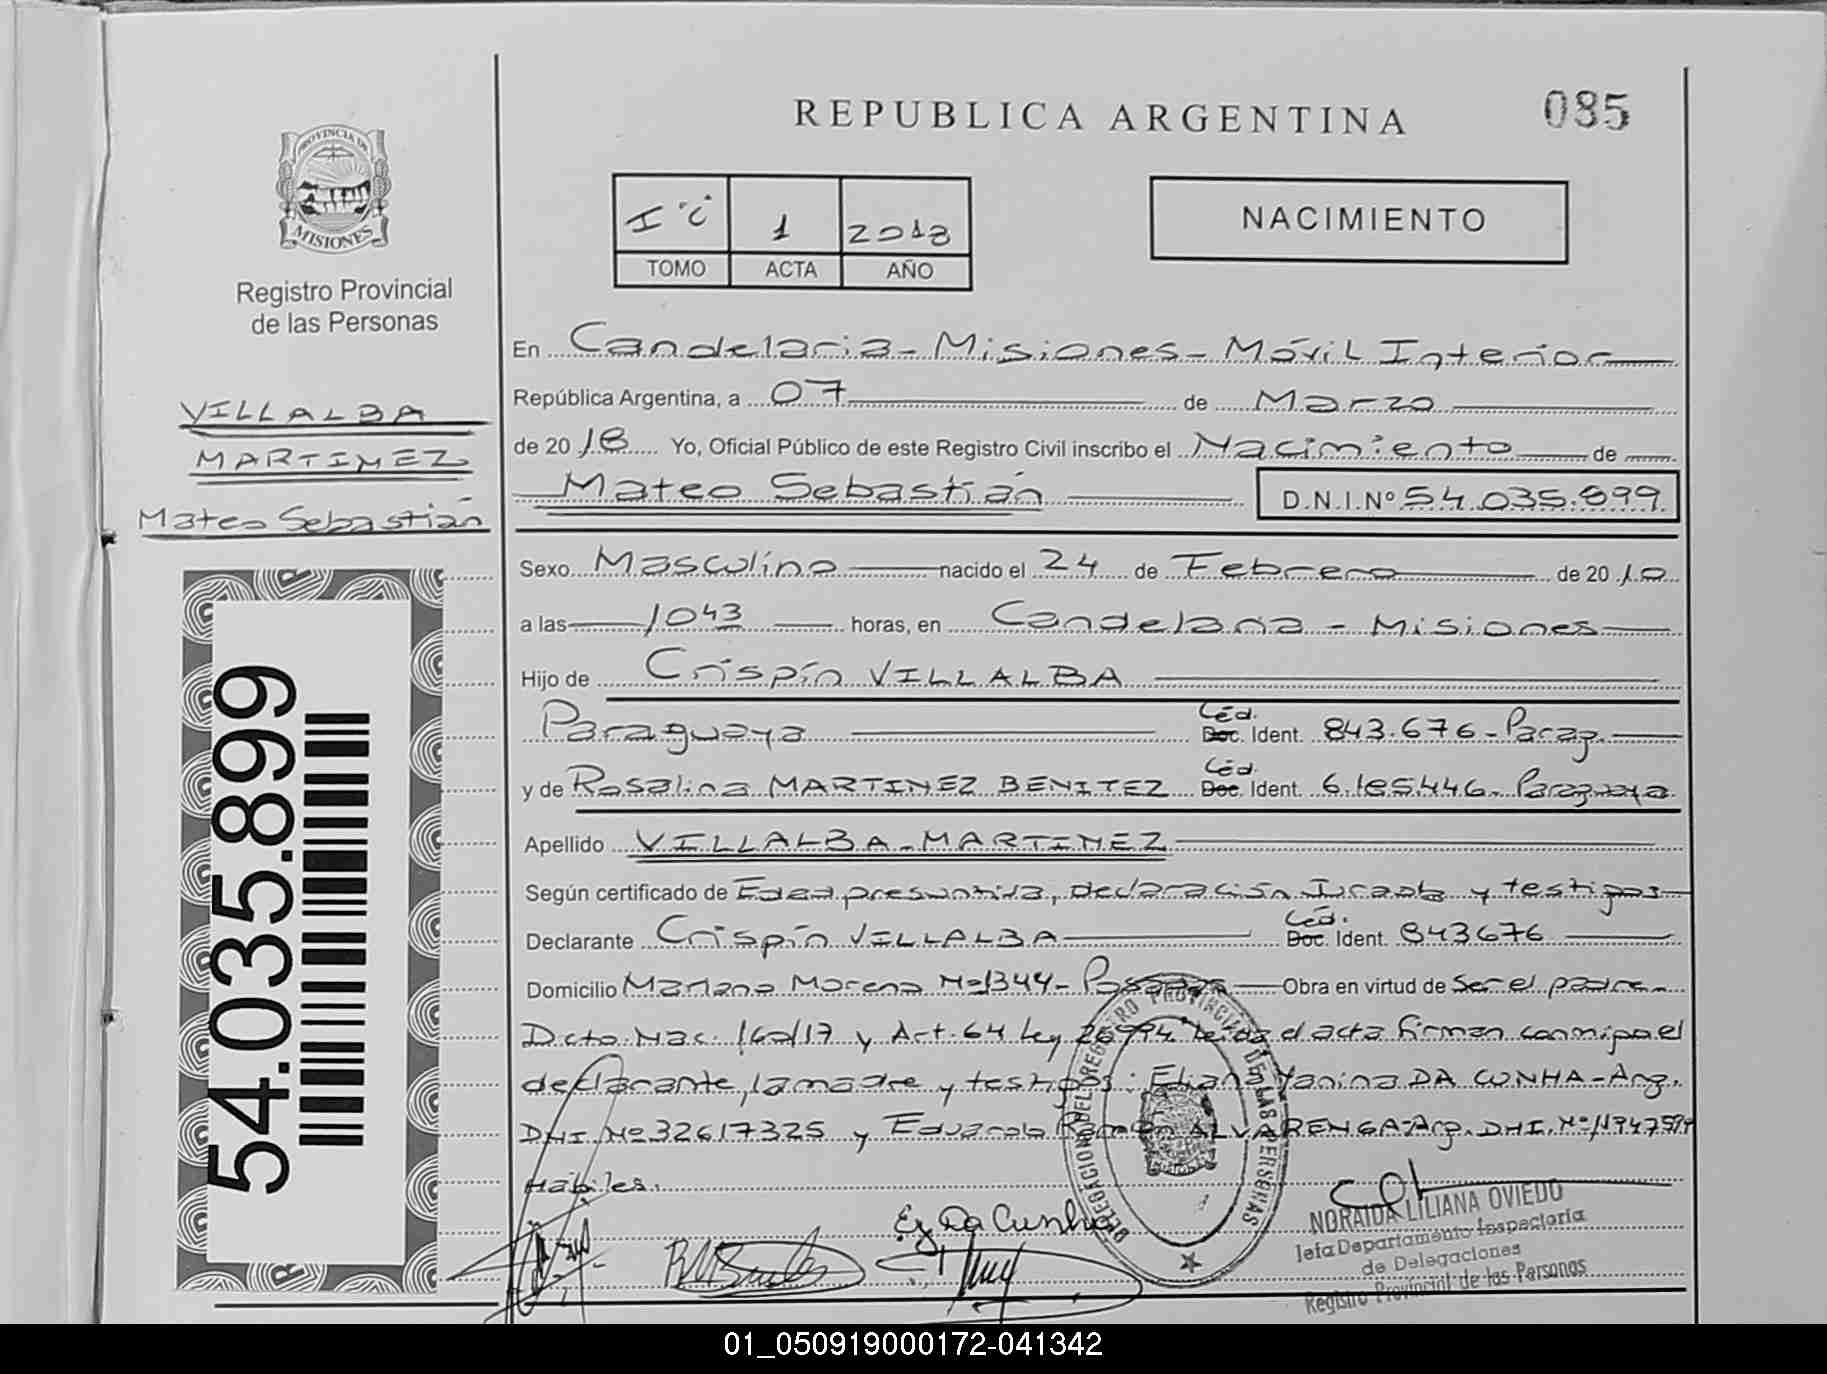 085
REPUBLICA ARGENTINA
PROVINCIA DE
MISIONES
Registro Provincial
de las Personas
I "C" 1 2018
TOMO ACTA AÑO
NACIMIENTO
VILLALBA
MARTINEZ
Mateo Sebastián
54.035.899
En Candelaria - Misiones - Móvil Interior
República Argentina, a 07 de Marzo
de 2018 Yo, Oficial Público de este Registro Civil inscribo el Nacimiento de
Mateo Sebastián D.N.I.Nº 54.035.899
Sexo Masculino nacido el 24 de Febrero de 2010
a las 10 43 horas, en Candelaria - Misiones
Hijo de Crispín VILLALBA
Paraguaya Céd. Doc. Ident. 843.676 - Parag.
y de Rosalina MARTINEZ BENITEZ Céd. Doc. Ident. 6.185.446 - Paraguaya
Apellido VILLALBA - MARTINEZ
Según certificado de Edad presuntiva, declaración Jurada y testigos
Declarante Crispín VILLALBA Céd. Doc. Ident. 843676
Domicilio Mariano Moreno Nº 1344 - Posadas Obra en virtud de Ser el padre -
Dcto. Nac. 160/17 y Art. 64 Ley 26994. Leída el acta firman conmigo el
declarante, la madre y testigos: Eliana Yanina DA CUNHA - Arg.
DNI. Nº 32617325 y Eduardo Ramón ALVARENGA Arg. DNI. Nº
Habiles.
DELEGACION DEL REGISTRO PROVINCIAL DE LAS PERSONAS
Ey Da Cunha
NORAIDA LILIANA OVIEDO
Jefa Departamento Inspectoría
de Delegaciones
Registro Provincial de las Personas
01_050919000172-041342